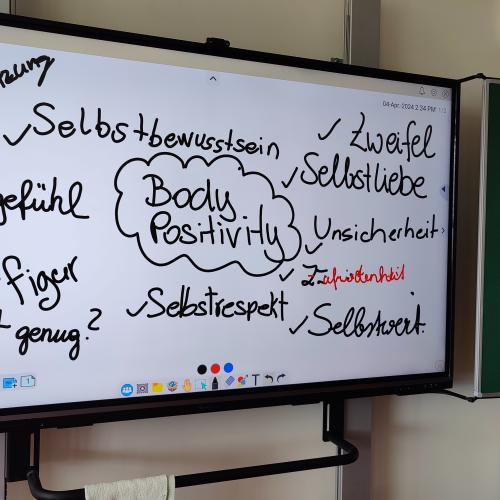 ✓Selbstbewusstsein
✓ Zweifel
✓Selbstliebe
gefühl
Body
Positivity
Unsicherheit
✓
figur
✓Selbstrespekt
✓Selbstwert.
genug?
04-Apr.-2024 2:34 PM 1/3
1
T